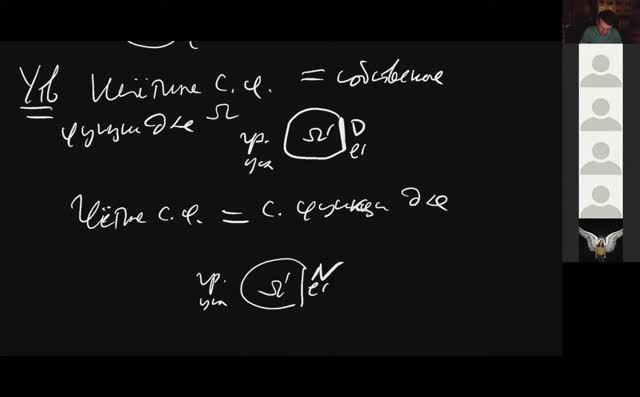 Утв Нечётные с.ф. = собственные
функции для Ω
гр. усл Ω' D ℓ₁
Чётные с.ф. = с. функции для
гр. усл Ω' N ℓ₁